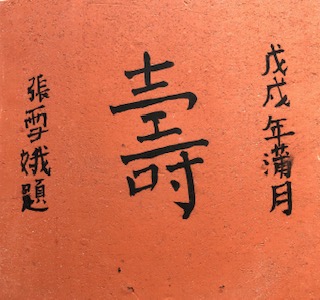 戊戌年蒲月
壽
張雪娥題